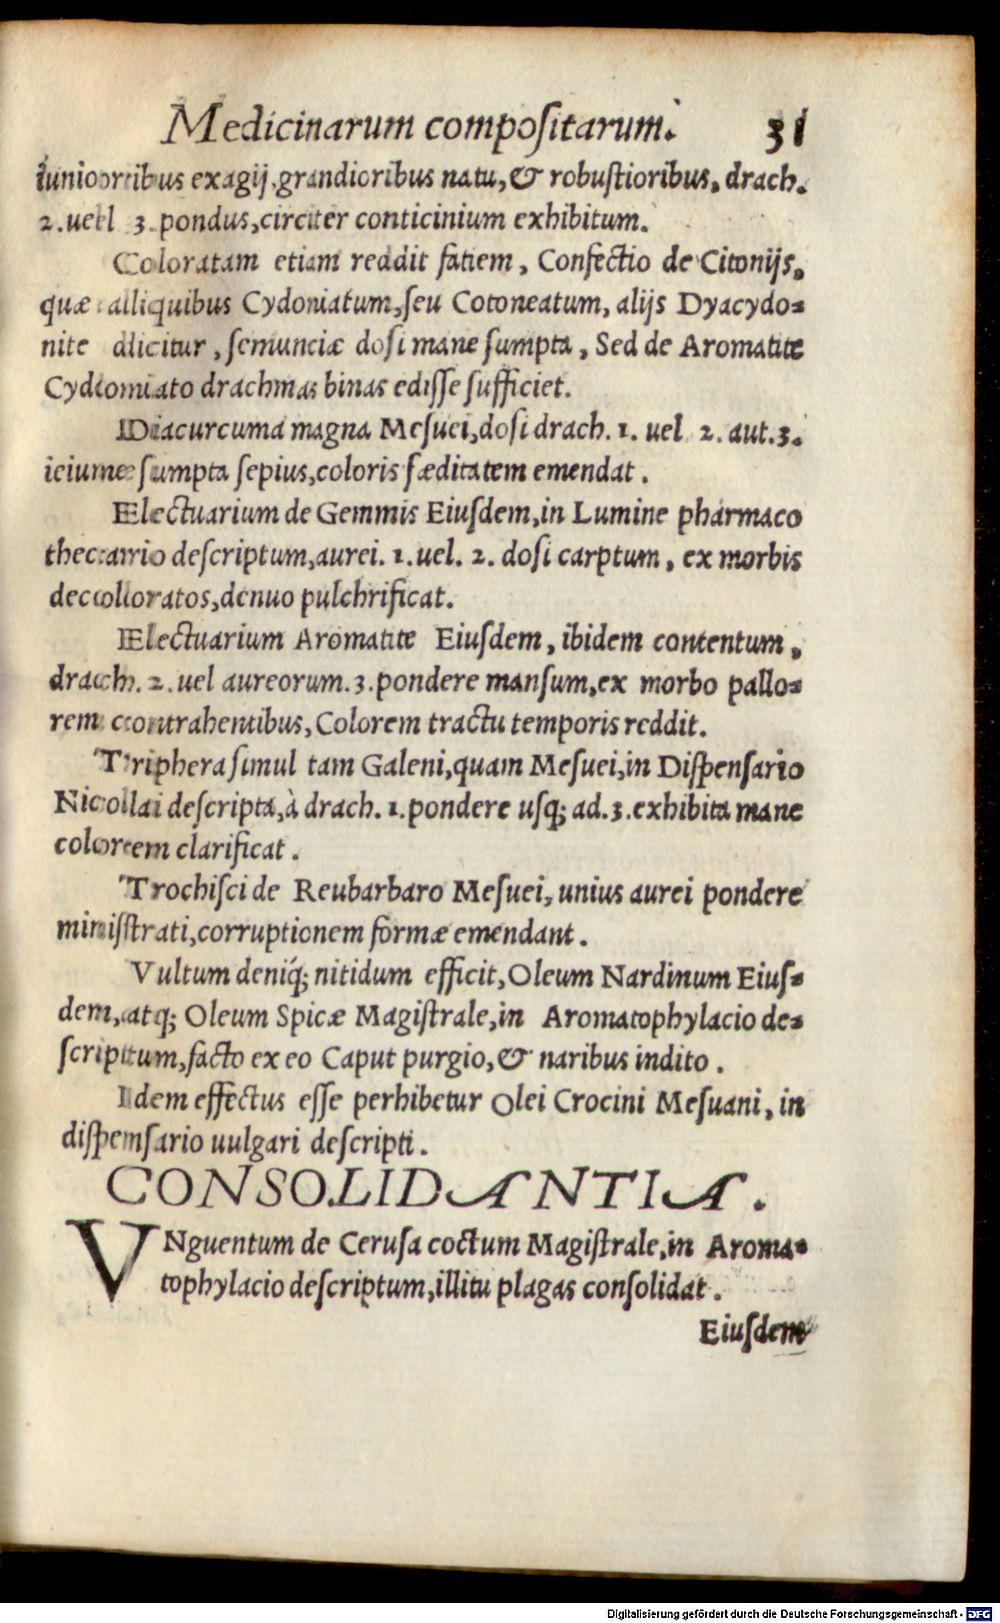 Medicinarum compositarum. 31
iunioribus exagij. grandioribus natu, & robuſtioribus, drach.
2. vel 3. pondus, circiter conticinium exhibitum.
Coloratam etiam reddit fatiem, Confectio de Citonijs,
quæ alliquibus Cydoniatum, ſeu Cotoneatum, alijs Dyacydo⸗
nite dicitur, ſemunciæ doſi mane ſumpta, Sed de Aromatite
Cydoniato drachmas binas ediſſe ſufficiet.
Diacurcuma magna Meſuei, doſi drach. 1. uel 2. aut. 3.
ieiune ſumpta ſepius, coloris fæditatem emendat.
Electuarium de Gemmis Eiuſdem, in Lumine pharmaco
thecario deſcriptum, aurei. 1. uel. 2. doſi carptum, ex morbis
decolloratos, denuo pulchrificat.
Electuarium Aromatite Eiuſdem, ibidem contentum,
drach. 2. uel aureorum. 3. pondere manſum, ex morbo pallo⸗
rem contrahentibus, Colorem tractu temporis reddit.
Triphera ſimul tam Galeni, quam Meſuei, in Diſpenſario
Nicollai deſcripta, à drach. 1. pondere uſq; ad. 3. exhibita mane
colorem clarificat.
Trochiſci de Reubarbaro Meſuei, unius aurei pondere
miniſtrati, corruptionem formæ emendant.
Vultum deniq́; nitidum efficit, Oleum Nardinum Eiuſ⸗
dem, atq; Oleum Spicæ Magiſtrale, in Aromatophylacio de⸗
ſcriptum, facto ex eo Caput purgio, & naribus indito.
Idem effectus eſſe perhibetur Olei Crocini Meſuani, in
diſpenſario uulgari deſcripti.
CONSOLIDANTIA.
VNguentum de Ceruſa coctum Magiſtrale, in Aroma⸗
tophylacio deſcriptum, illitu plagas conſolidat.
Eiuſdem
Digitalisierung gefördert durch die Deutsche Forschungsgemeinschaft - DFG